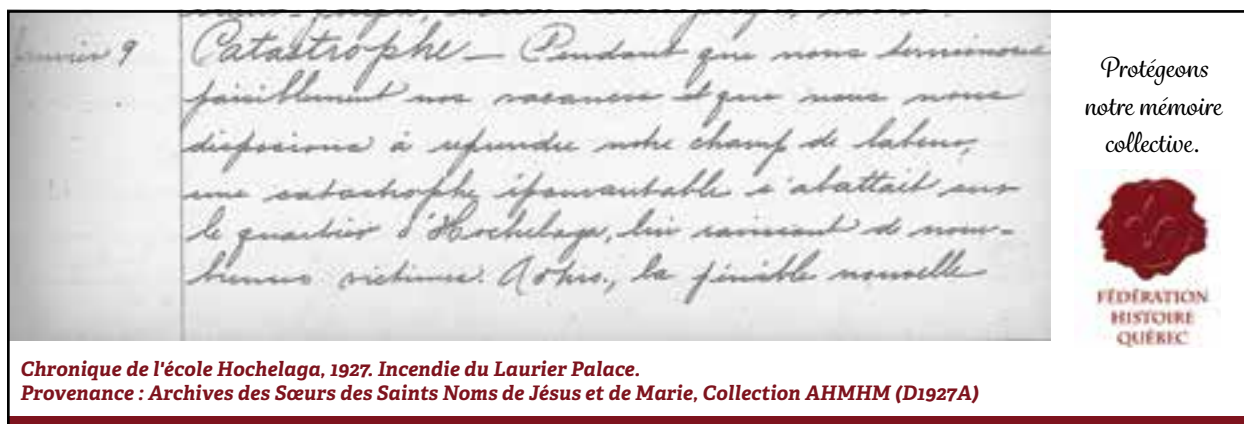 Janvier 9
Catastrophe — Pendant que nous terminions
paisiblement nos vacances et que nous nous
disposions à reprendre notre champ de labeur,
une catastrophe épouvantable s'abattait sur
le quartier d'Hochelaga, lui ravissant de nom-
breuses victimes. la pénible nouvelle
Protégeons
notre mémoire
collective.
FÉDÉRATION
HISTOIRE
QUÉBEC
Chronique de l'école Hochelaga, 1927. Incendie du Laurier Palace.
Provenance : Archives des Sœurs des Saints Noms de Jésus et de Marie, Collection AHMHM (D1927A)